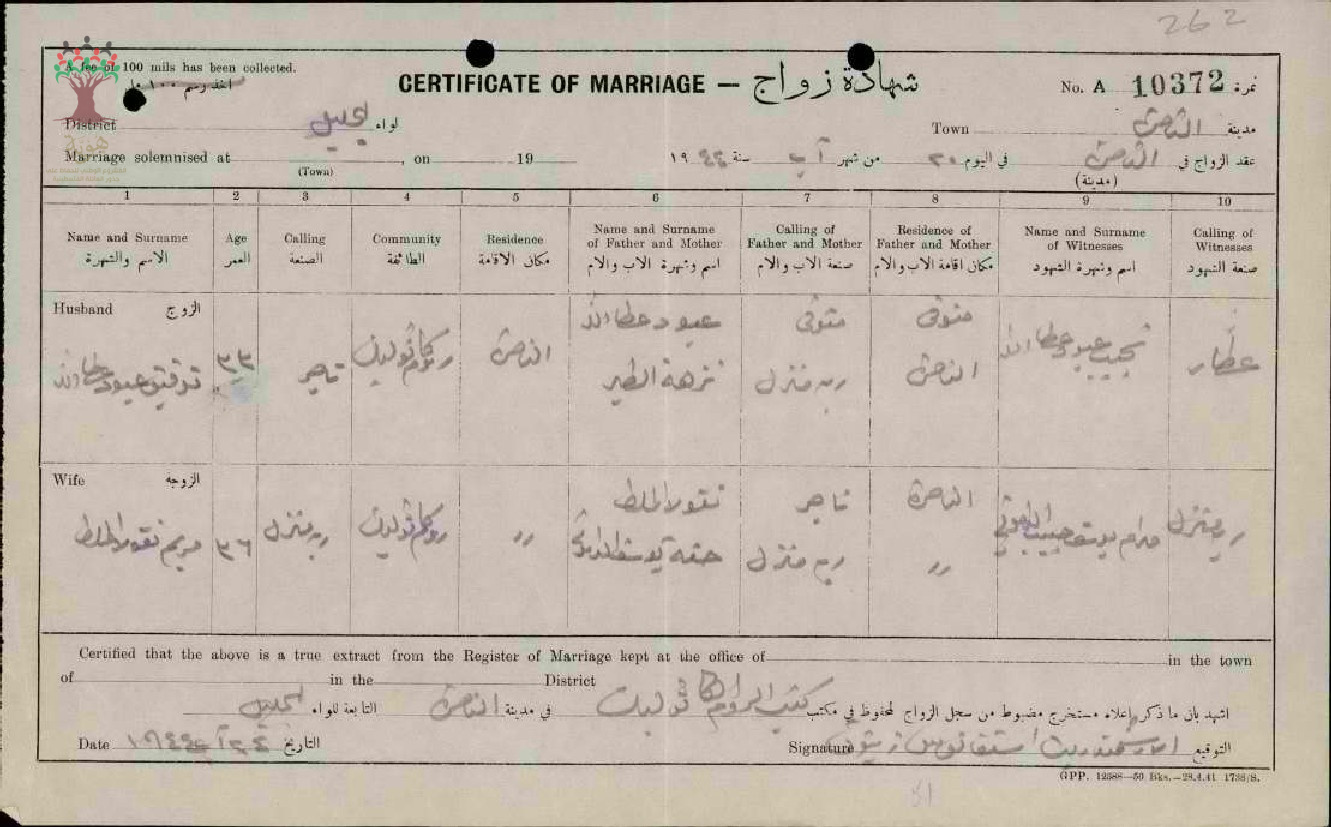 262
A fee of 100 mils has been collected.
CERTIFICATE OF MARRIAGE — شهادة زواج
No. A 10372 نمرة
اخذ رسم ١٠٠ مل
هوية
District لواء الجليل
Town مدينة الناصرة
Marriage solemnised at , on 19
عقد الزواج في الناصرة في اليوم ٢٠ من شهر آب سنة ١٩٤٤
(Town) (مدينة)
1 2 3 4 5 6 7 8 9 10
Name and Surname Age Calling Community Residence Name and Surname of Father and Mother Calling of Father and Mother Residence of Father and Mother Name and Surname of Witnesses Calling of Witnesses
الاسم والشهرة العمر الصنعة الطائفة مكان الاقامة اسم وشهرة الاب والام صنعة الاب والام مكان اقامة الاب والام اسم وشهرة الشهود صنعة الشهود
Husband الزوج
توفيق عبود عطاالله ٣٣ تاجر روم كاثوليك الناصرة عبود عطاالله متوفى متوفى نجيب عبود عطا الله عطار
نزهة الطير ربة منزل الناصرة
Wife الزوجة
مريم نقولا الملط ٣٦ ربة منزل روم كاثوليك ,, نقولا الملط تاجر الناصرة يوسف حبيب ربة منزل
حنة يوسف ربة منزل ,,
Certified that the above is a true extract from the Register of Marriage kept at the office of in the town
of in the District
اشهد بان ما ذكر اعلاه مستخرج مضبوط من سجل الزواج المحفوظ في مكتب الروم الكاثوليك في مدينة الناصرة التابعة للواء الجليل
Date ٢٤ آب ١٩٤٤ التاريخ
Signature التوقيع
GPP. 12588—50 Bks.—28.4.41 1738/S.